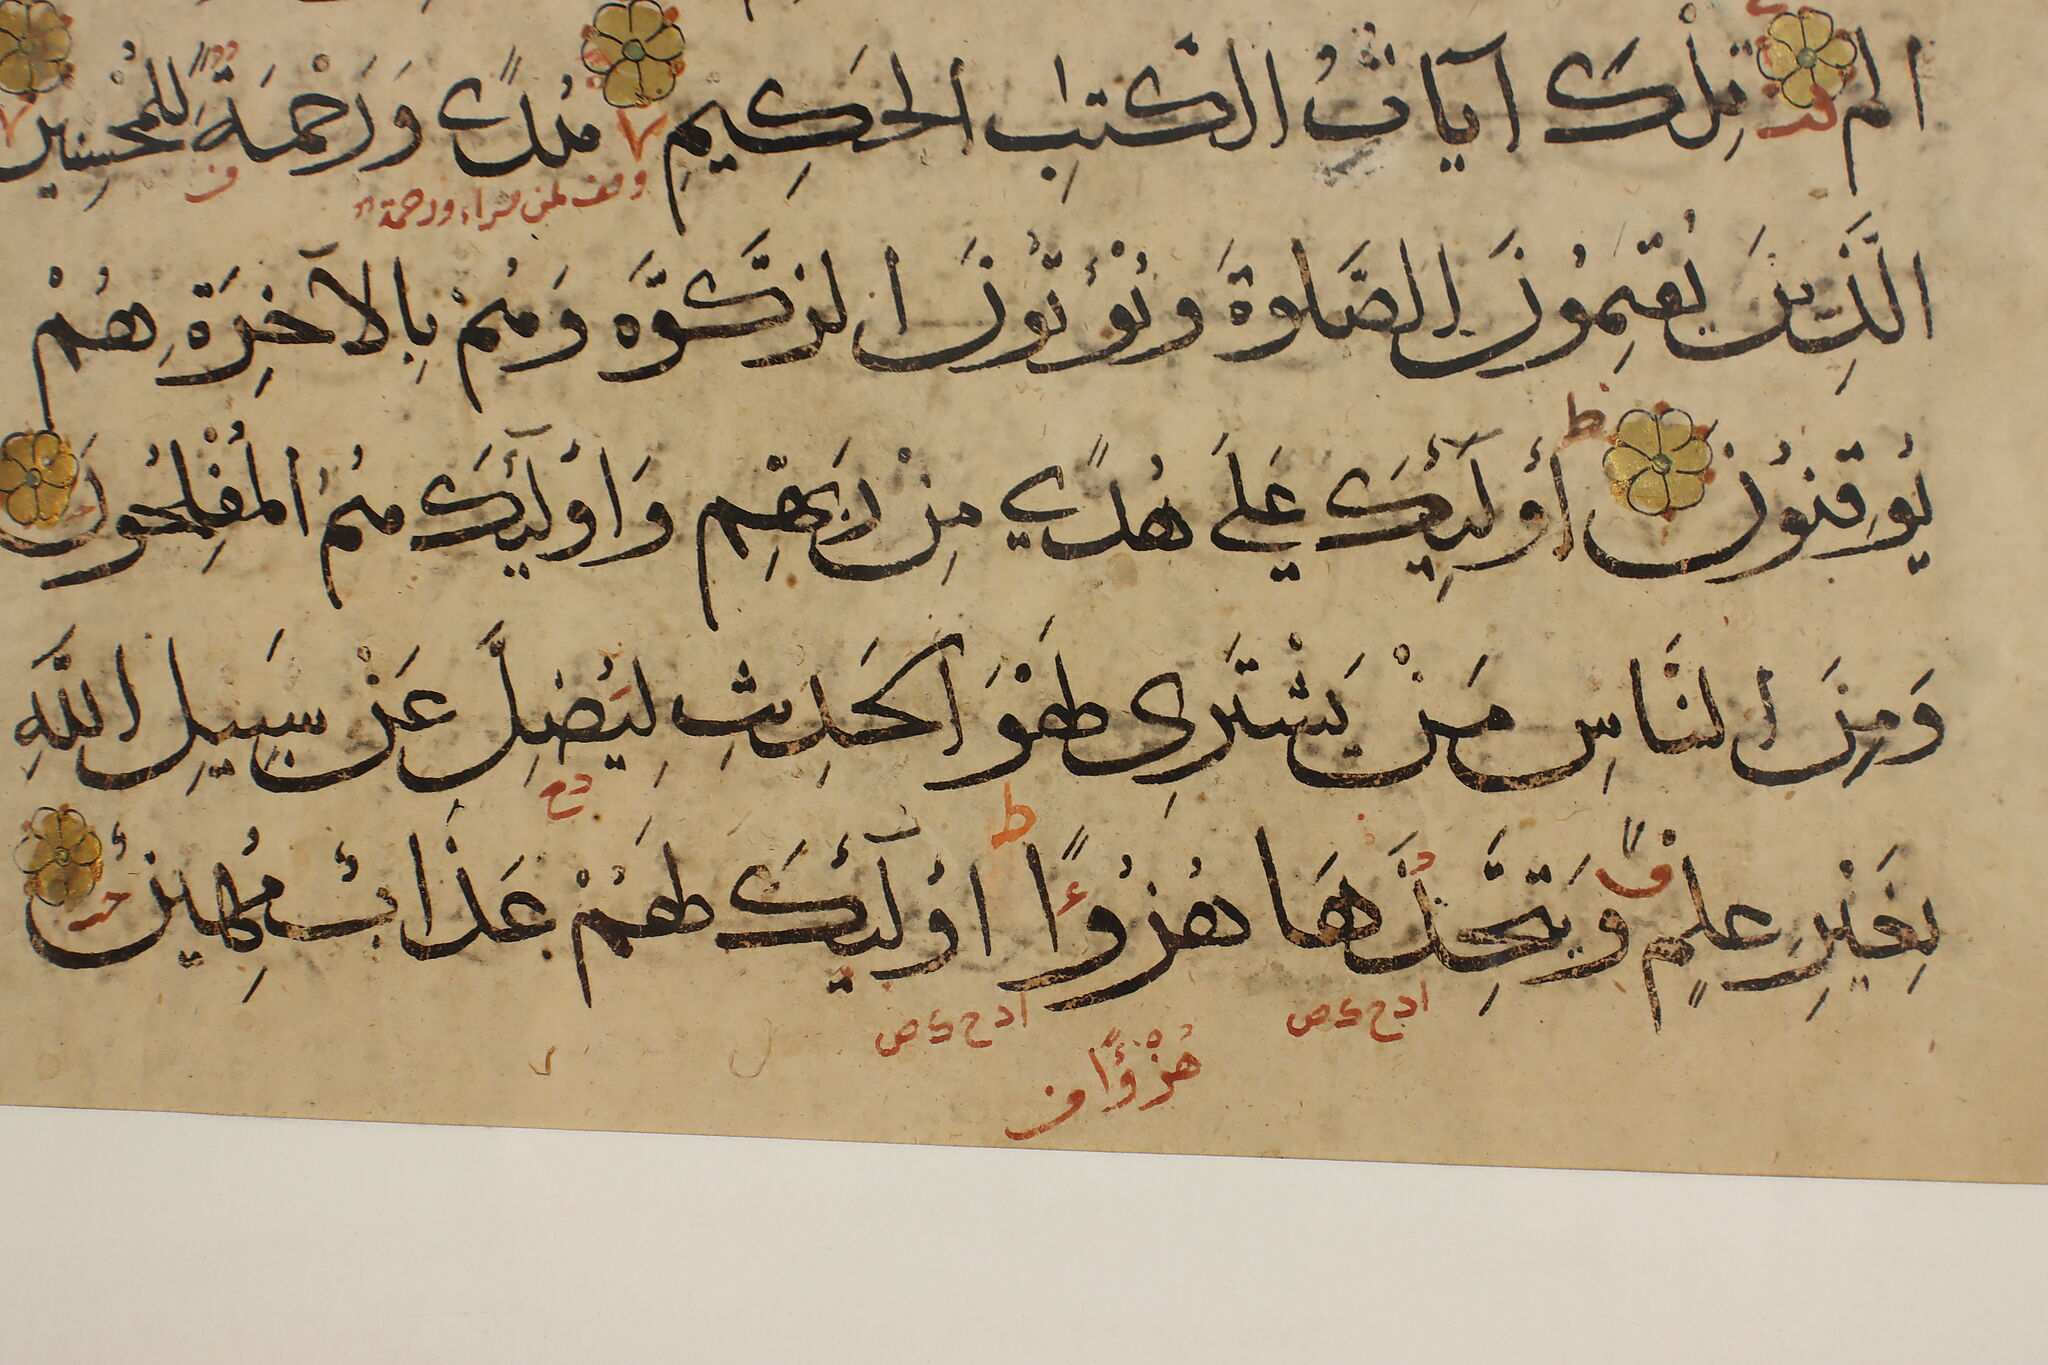 الم تِلْكَ آيَاتُ الْكِتٰبِ الْحَكِيْمِ هُدًى وَرَحْمَةً لِلْمُحْسِنِيْنَ
وقف لمن قراء ورحمة
الَّذِيْنَ يُقِيْمُوْنَ الصَّلٰوةَ وَيُؤْتُوْنَ الزَّكٰوةَ وَهُمْ بِالْآخِرَةِ هُمْ
يُوْقِنُوْنَ
ط
أُولٰٓئِكَ عَلٰى هُدًى مِنْ رَبِّهِمْ وَاُولٰٓئِكَ هُمُ الْمُفْلِحُوْنَ
وَمِنَ النَّاسِ مَنْ يَشْتَرِى لَهْوَ الْحَدِيْثِ لِيُضِلَّ عَنْ سَبِيْلِ اللّٰهِ
دح
ط
بِغَيْرِ عِلْمٍ وَيَتَّخِذُهَا هُزُوًا اُولٰٓئِكَ لَهُمْ عَذَابٌ مُهِيْنٌ
ادح ك ص
ادح ك ص
هُزْؤًا ف